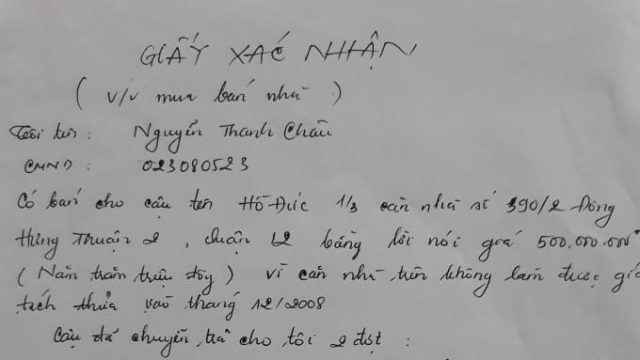 GIẤY XÁC NHẬN
( V/v mua bán nhà )
Tôi tên : Nguyễn Thanh Châu
CMND : 023080523
Có bán cho cậu tên Hồ Đức 1/3 căn nhà số 390/2 Đông
Hưng Thuận 2 , quận 12 bằng lời nói giá 500.000.000đ
( Năm trăm triệu đồng ) vì căn nhà trên không làm được giấ
tách thửa vào tháng 12/2008
Cậu đã chuyển trả cho tôi 2 đợt :